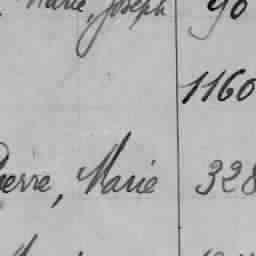 Marie, Joseph 90
1160
Pierre, Marie 328